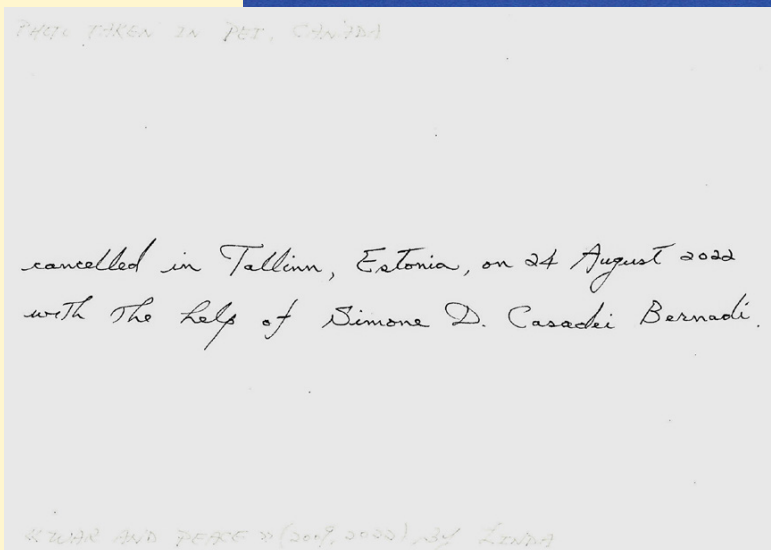 PHOTO TAKEN IN PEI, CANADA
cancelled in Tallinn, Estonia, on 24 August 2022
with the help of Simone D. Casadei Bernadi.
«WAR AND PEACE» (2009, 2022) BY LINDA